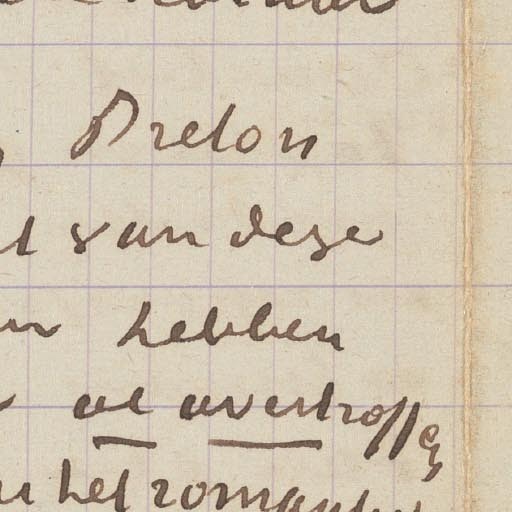 Breton
van deze
hebben
al overtroffen
het